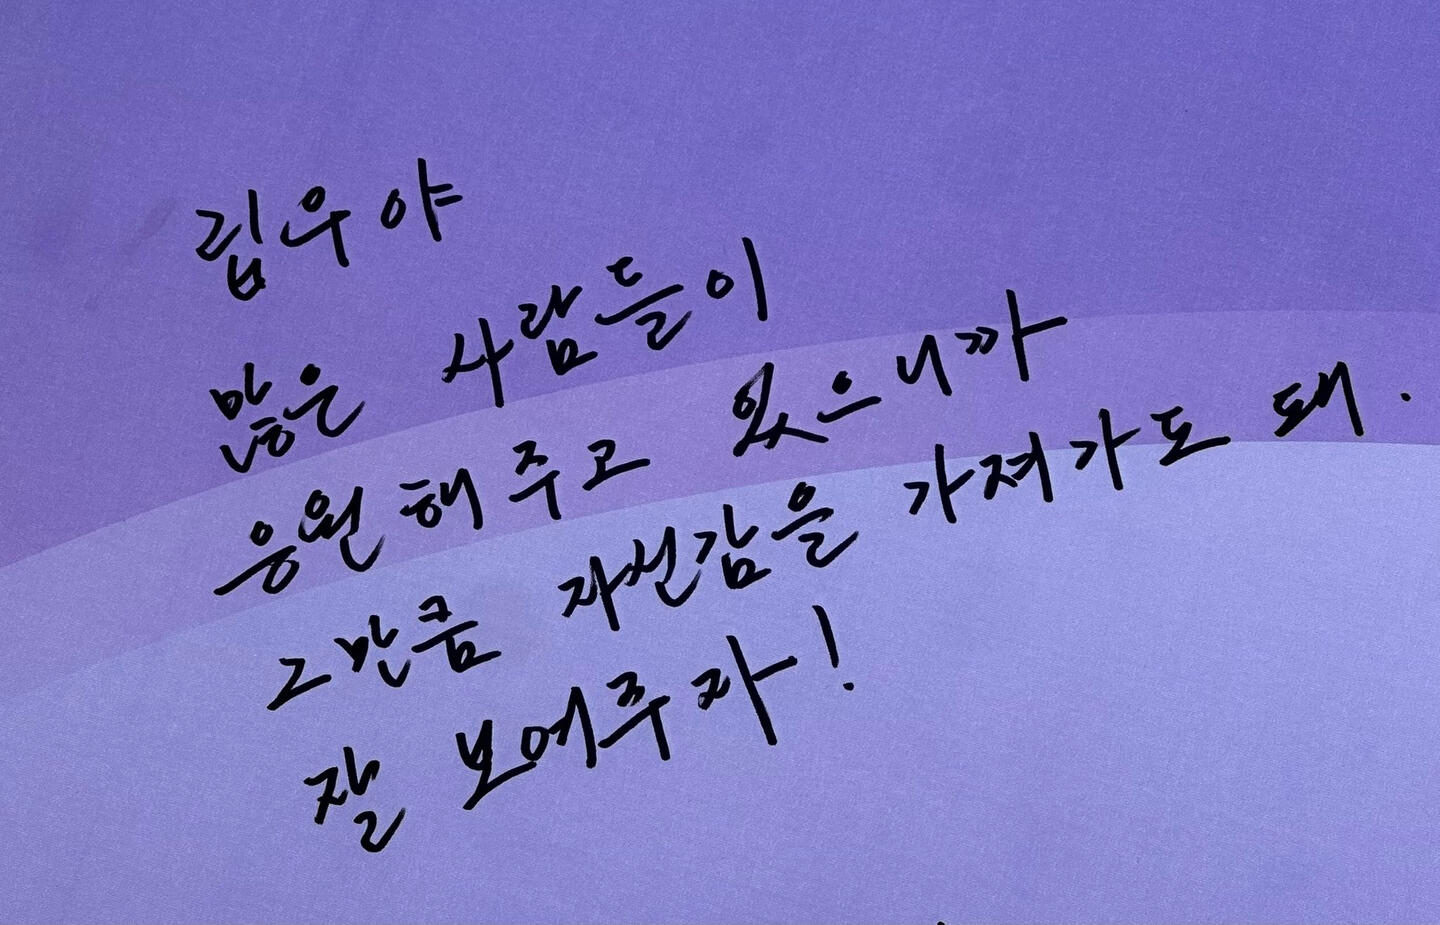 립우야
많은 사람들이
응원해주고 있으니까
그만큼 자신감을 가져가도 돼.
잘 보여주자!